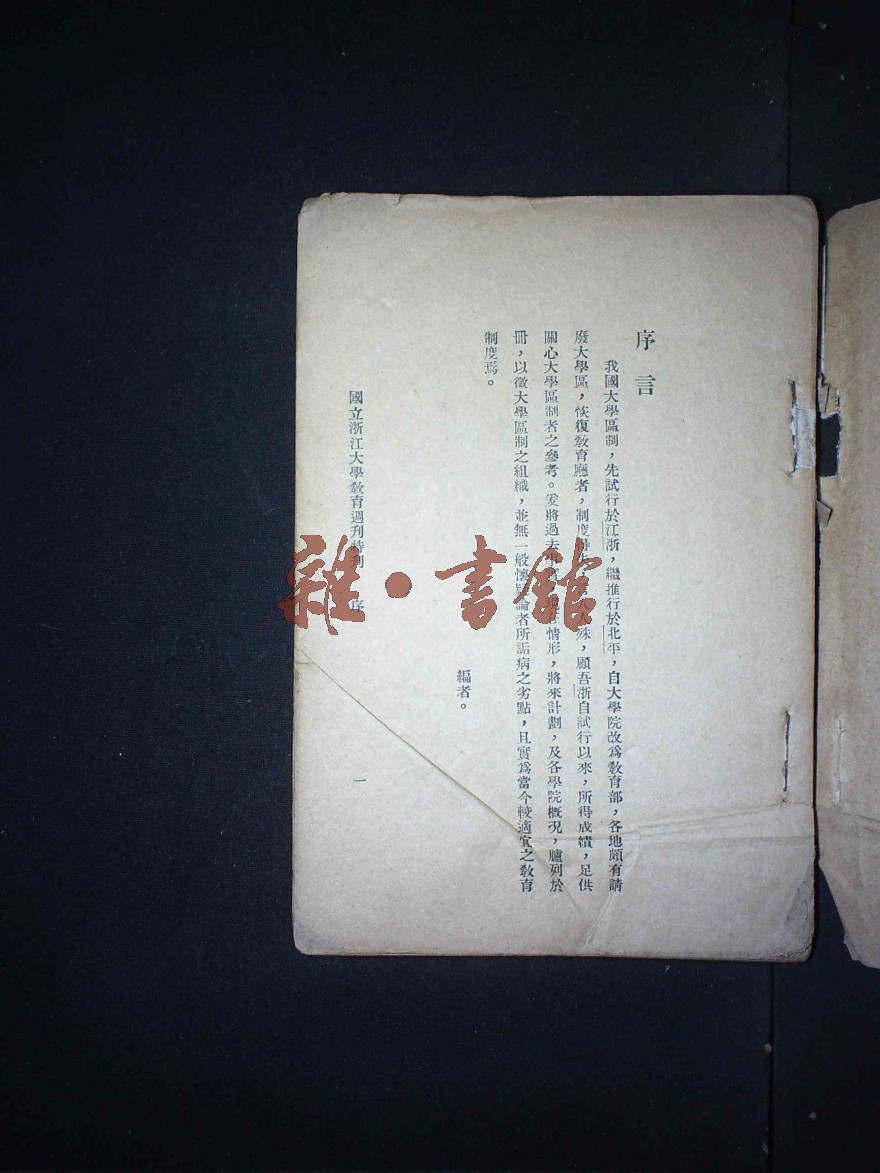 序言
我國大學區制，先試行於江浙，繼推行於北平，自大學院改爲教育部，各地頗有請
廢大學區，恢復教育廳者，制度得失，言人人殊，顧吾浙自試行以來，所得成績，足供
關心大學區制者之參考。爰將過去事實，現在情形，將來計劃，及各學院概况，臚列於
冊，以徵大學區制之組織，並無一般懷疑論者所詬病之劣點，且實爲當今較適宜之教育
制度焉。
編者。
國立浙江大學教育週刊特刊 序
一
雜·書館